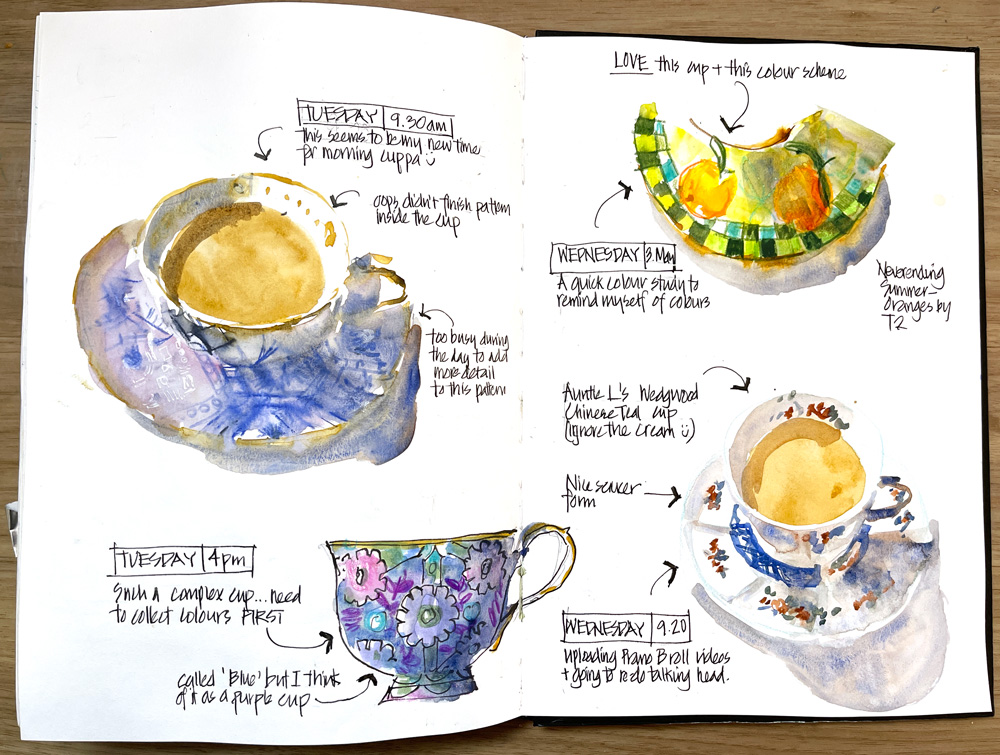 TUESDAY 9.30am
this seems to be my new time
for morning cuppa
oops, didn't finish pattern
inside the cup
too busy during
the day to add
more detail
to this pattern
TUESDAY 4pm
Such a complex cup... need
to collect colours FIRST
called 'Blue' but I think
of it as a purple cup
LOVE this cup + this colour scheme
WEDNESDAY 3. May
A quick colour study to
remind myself of colours
Neverending
Summer-
oranges by
T2
Auntie L's Wedgwood
Chinese Teal cup
(ignore the cream)
Nice saucer
form
WEDNESDAY 9.20
uploading Piano B roll videos
+ going to redo talking head.